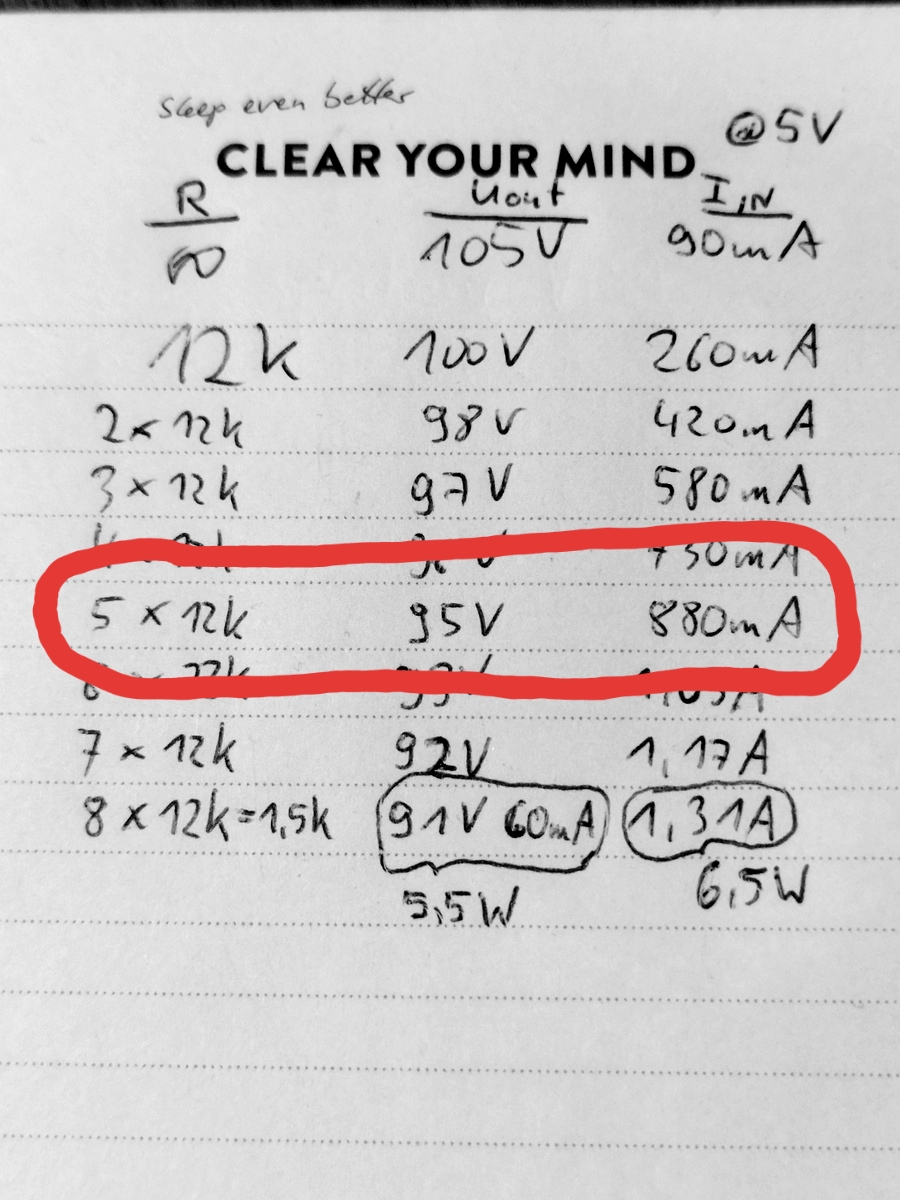 Sleep even better
@5V
CLEAR YOUR MIND
R Uout I,IN
∞ 105V 90mA
12k 100V 260mA
2 x 12k 98V 420mA
3 x 12k 97V 580mA
4 x 12k 96V 730mA
5 x 12k 95V 880mA
6 x 12k 93V 1,03A
7 x 12k 92V 1,17A
8 x 12k=1,5k 91V 60mA 1,31A
5,5W 6,5W